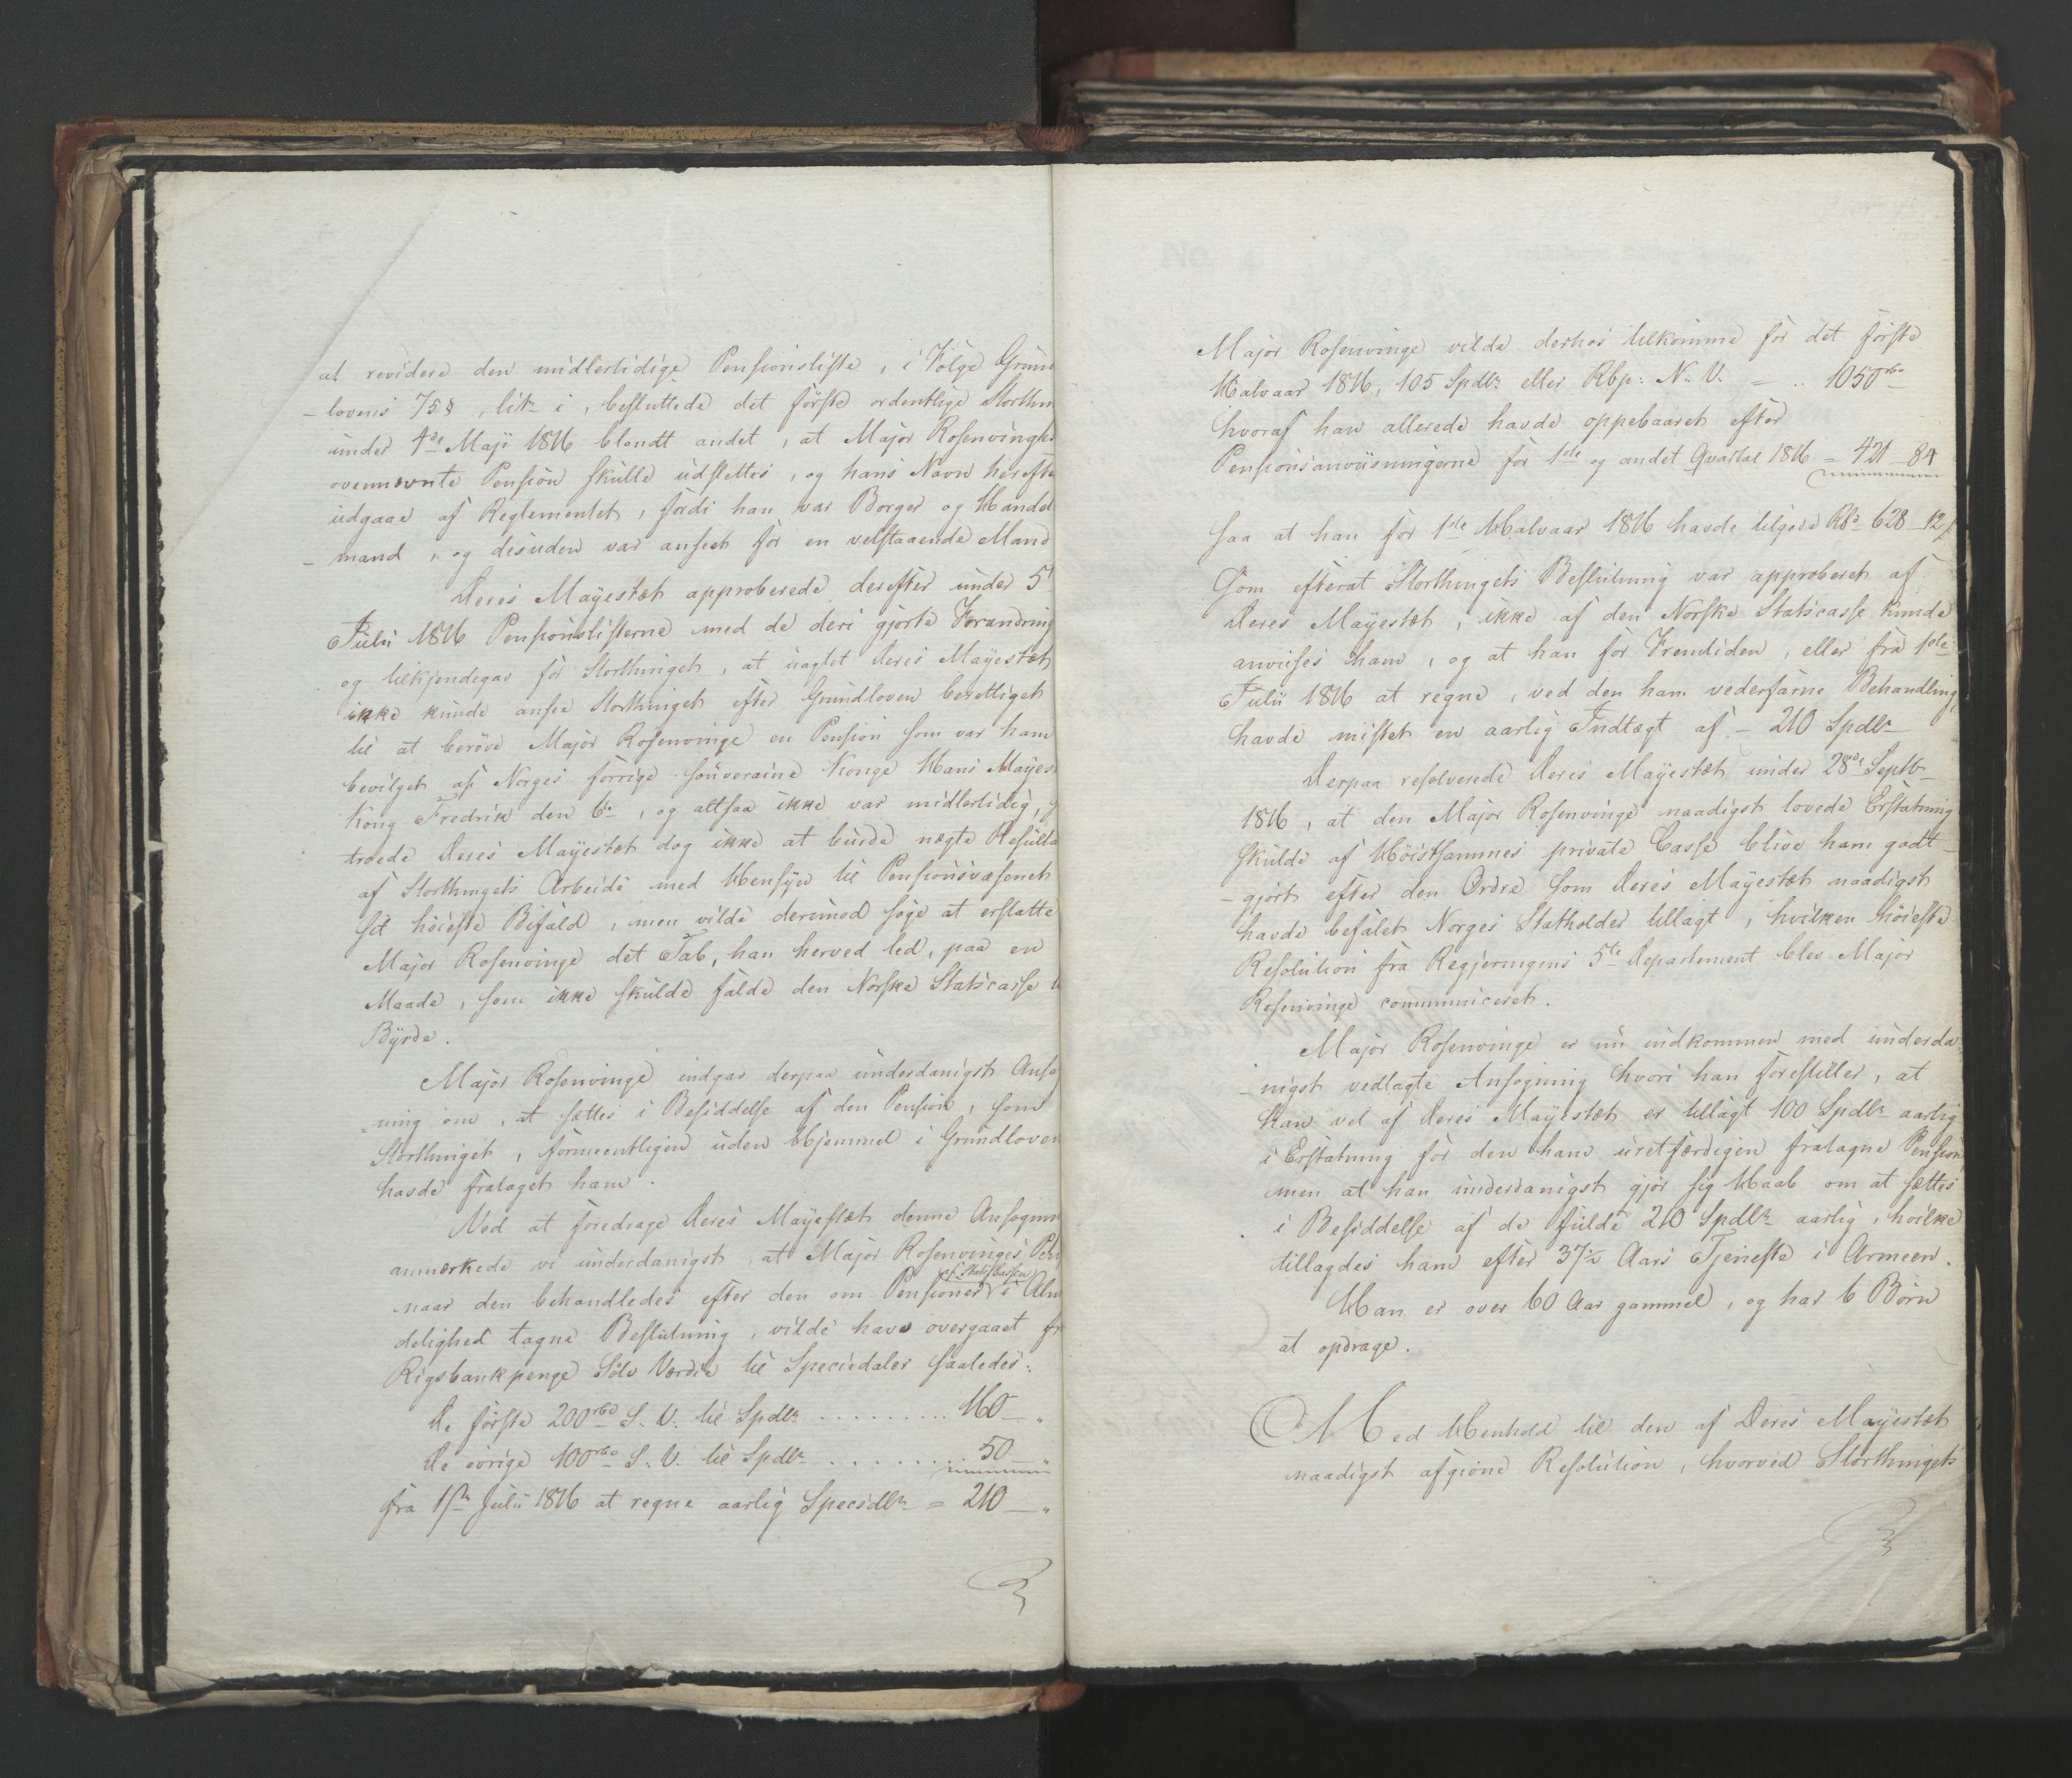 at revidere den midlertidige Pensionsliste, i Følge Grund
-lovens 75 §, litr i, besluttede det første ordentlige Storthin
under 4de Maji 1816 blandt andet, at Major Rosenvinges
ovennævnte Pension skulle udslettes, og hans Navn herefte
udgaae af Reglementet, fordi han var Borger og Handel
-mand, og desuden var anseet for en velstaaende Mand
Deres Mayestæt approberede derefter under 5t
Julii 1816 Pensionslisterne med de deri gjorte Forandring
og tilkjendegav for Storthinget, at uagtet Deres Mayestæt
ikke kunde ansee Storthinget efter Grundloven berettiget
til at berøve Major Rosenvinge en Pension som var ham
bevilget af Norges forrige souveraine Konge Hans Mayest
Kong Fredrik den 6te, og altsaa ikke var midlertidig,
troede Deres Mayestæt dog ikke at burde nægte Resulta
af Storthingets Arbeide med Hensyn til Pensionsvæsenet
sit høieste Bifald, men vilde derimod søge at erstatte
Major Rosenvinge det Tab, han herved led, paa en
Maade, som ikke skulde falde den Norske Statscasse t
Byrde.
Major Rosenvinge indgav derpaa underdanigst Ansøg
-ning om, at sættes i Besiddelse af den Pension, som
Storthinget, formeentligen uden Hjemmel i Grundloven
havde frataget ham.
Ved at foredrage Deres Mayestæt denne Ansøgnin
anmærkede vi underdanigst, at Major Rosenvinges Pen
af StatsCassen
naar den behandledes efter den om Pensioner i Alm
delighed tagne Beslutning, vilde have overgaaet fr
Rigsbankpenge Sølv Værdie til Speciedaler saaledes:
De første 200 rbd S. V. til Spdlr ......... 160 — "
De øvrige 100 rbd S. V. til Spdlr ......... 50 — "
fra 1ste Julii 1816 at regne aarlig Speciedlr = 210 — "
Major Rosenvinge vilde derhos tilkomme for det første
Halvaar 1816, 105 Spdlr eller Rbp: N. V. — .. 1050 rbd
hvoraf han allerede havde oppebaaret efter
Pensionsanviisningerne for 1ste og andet Qvartal 1816 = 421 — 84
saa at han for 1ste Halvaar 1816 havde tilgode Rbd 628 — 12 s
Som efterat Storthingets Beslutning var approberet af
Deres Mayestæt, ikke af den Norske Statscasse kunde
anvises ham, og at han for Fremtiden, eller fra 1ste
Julii 1816 at regne, ved den ham vederfarne Behandling,
havde mistet en aarlig Indtægt af — 210 Spdlr
Derpaa resolverede Deres Mayestæt under 28de Septbr
1816, at den Major Rosenvinge naadigst lovede Erstatning
skulde af Høistsammes private Casse blive ham godt-
-gjort efter den Ordre som Deres Mayestæt naadigst
havde befalet Norges Statholder tillagt, hvilken høieste
Resolution fra Regjeringens 5te Departement blev Major
Rosenvinge communiceret.
Major Rosenvinge er nu indkommen med underda
-nigst vedlagte Ansøgning hvori han forestiller, at
ham vel af Deres Mayestæt er tillagt 100 Spdlr aarlig
i Erstatning for den ham uretfærdigen fratagne Pension,
men at han underdanigst gjør sig Haab om at sættes
i Besiddelse af de fulde 210 Spdlr aarlig, hvilke
tillagdes ham efter 37½ Aars Tjeneste i Armeen.
Han er over 60 Aar gammel, og har 6 Børn
at opdrage.
Med Henhold til den af Deres Mayestæt
naadigst afgivne Resolution, hvorved Storthingets